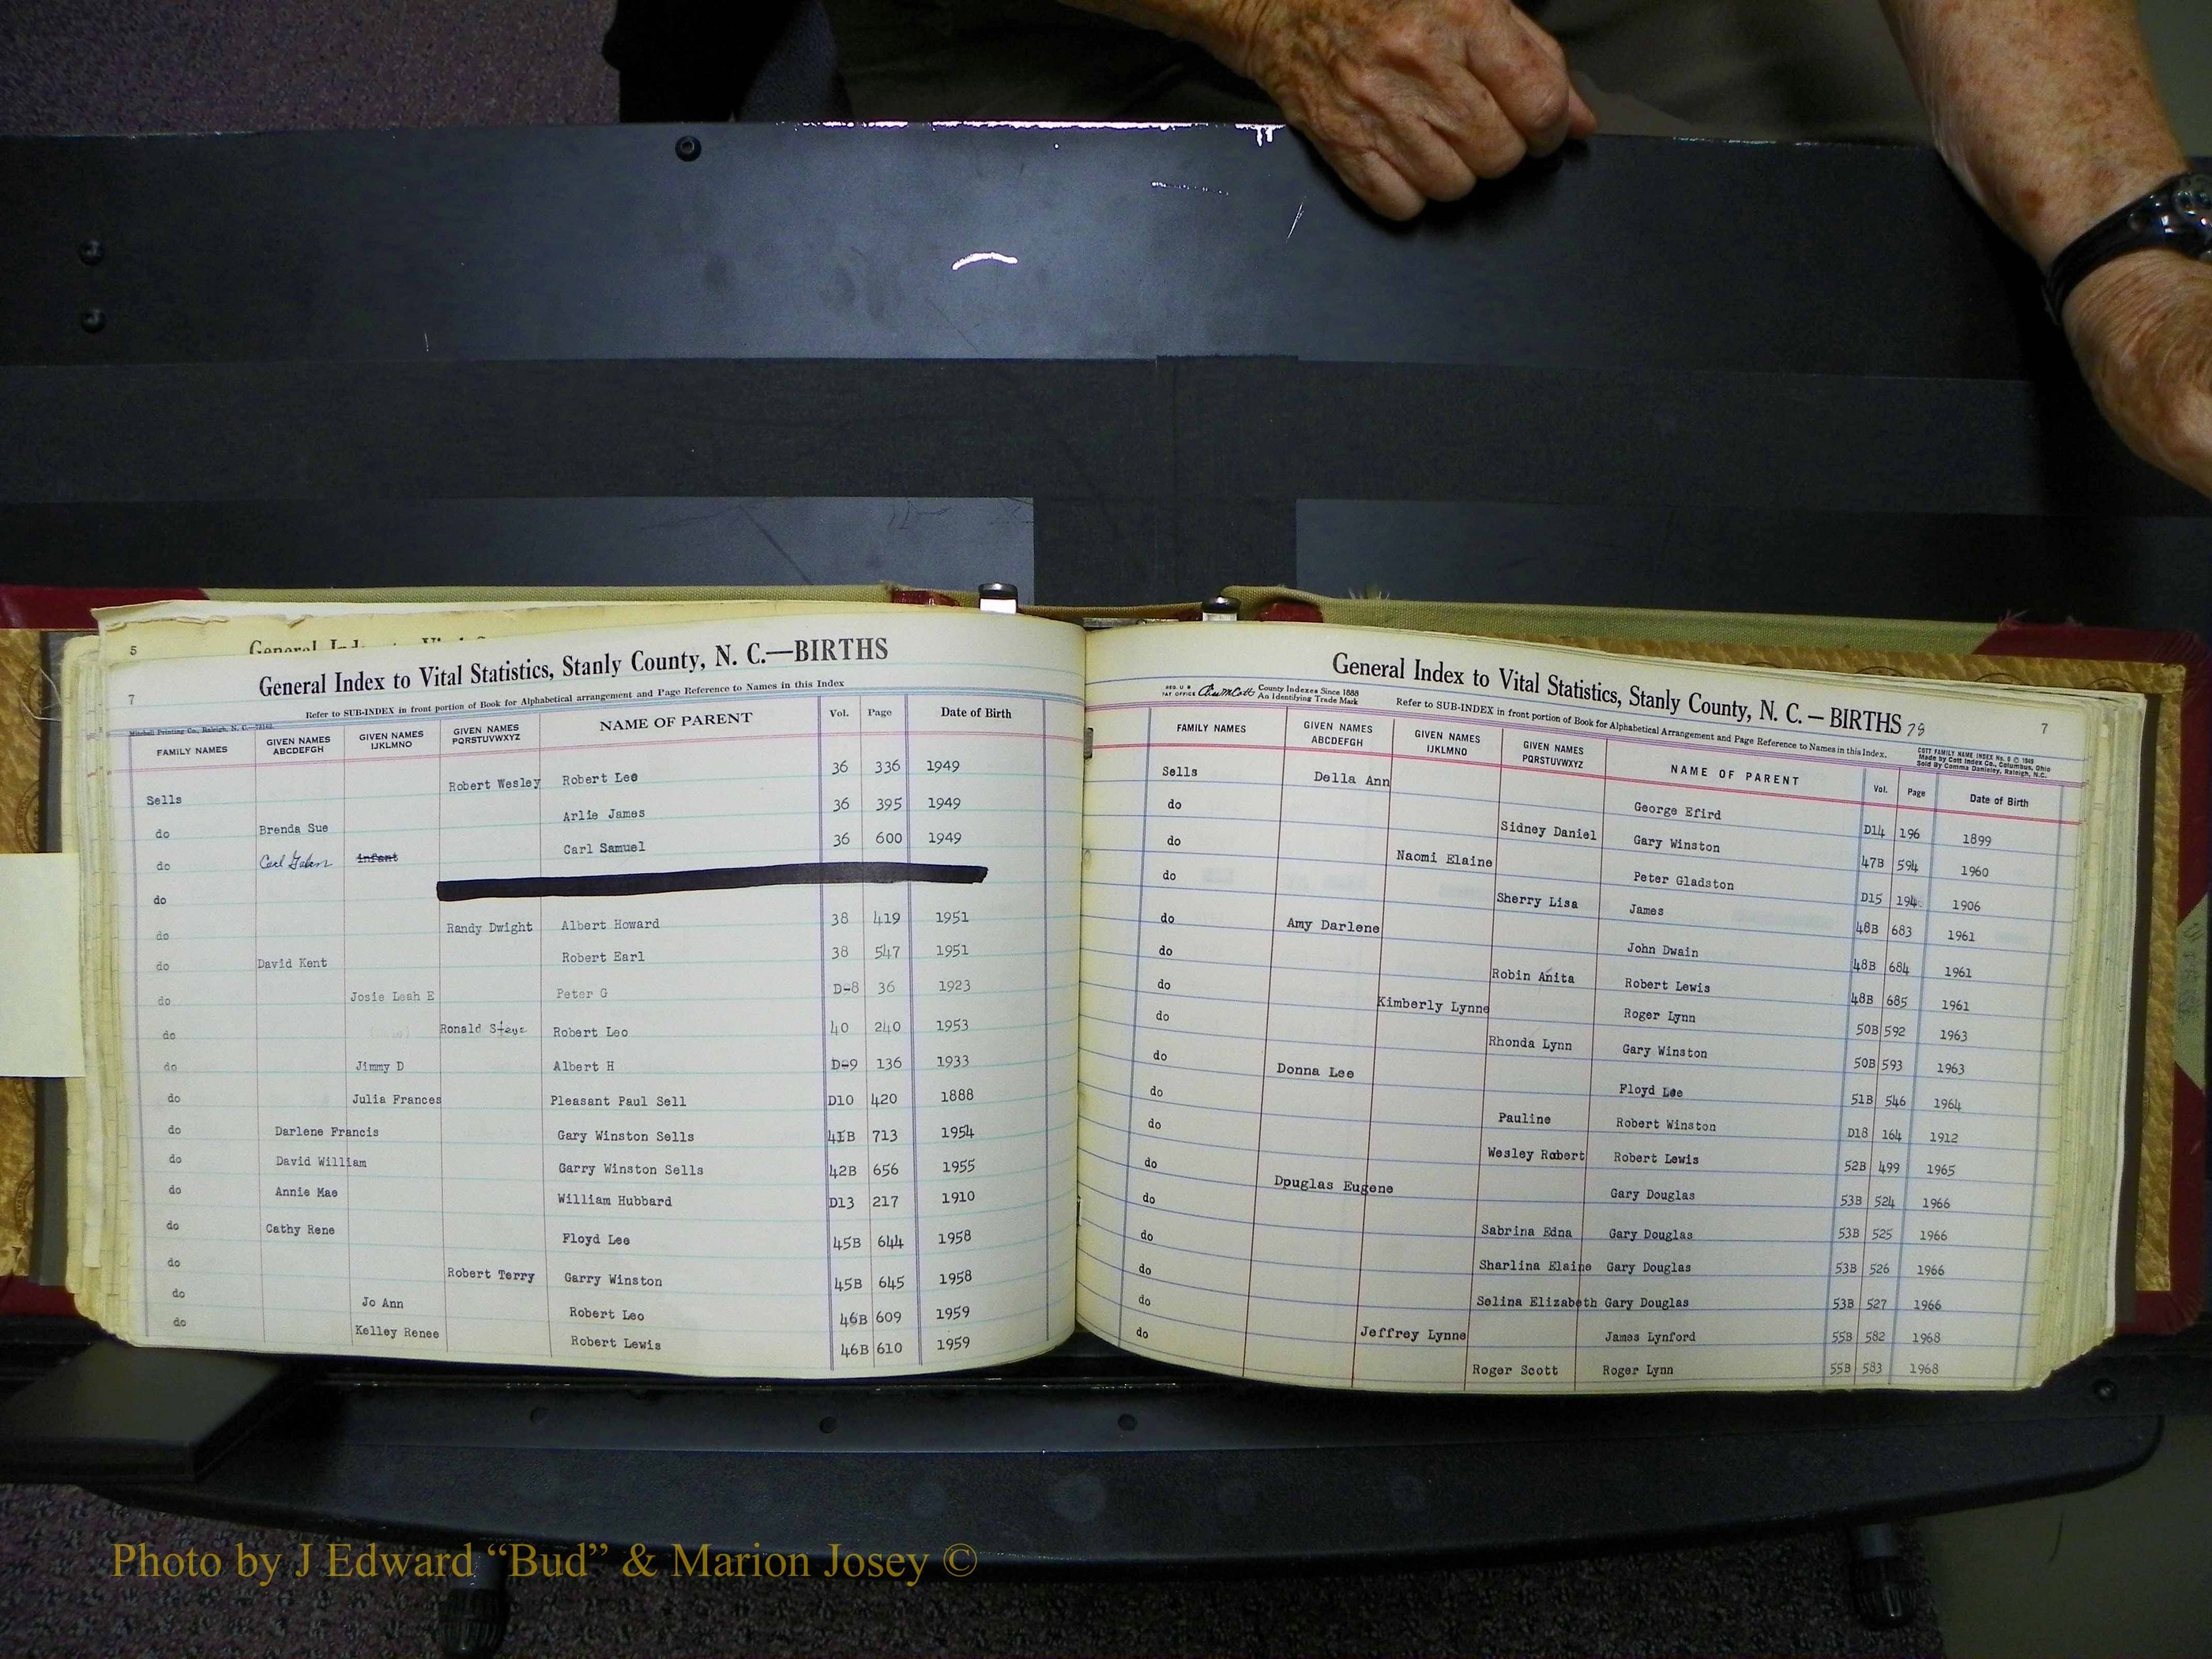 5 General Index to Vital S
7
General Index to Vital Statistics, Stanly County, N. C.—BIRTHS
Refer to SUB-INDEX in front portion of Book for Alphabetical arrangement and Page Reference to Names in this Index
Mitchell Printing Co., Raleigh, N. C.
FAMILY NAMES GIVEN NAMES ABCDEFGH GIVEN NAMES IJKLMNO GIVEN NAMES PQRSTUVWXYZ NAME OF PARENT Vol. Page Date of Birth
Sells Robert Wesley Robert Lee 36 336 1949
do Brenda Sue Arlie James 36 395 1949
do Carl infant Carl Samuel 36 600 1949
do
do Randy Dwight Albert Howard 38 419 1951
do David Kent Robert Earl 38 547 1951
do Josie Leah E Peter G D-8 36 1923
do Ronald Steve Robert Leo 40 240 1953
do Jimmy D Albert H D-9 136 1933
do Julia Frances Pleasant Paul Sell D10 420 1888
do Darlene Francis Gary Winston Sells 41B 713 1954
do David William Garry Winston Sells 42B 656 1955
do Annie Mae William Hubbard D13 217 1910
do Cathy Rene Floyd Lee 45B 644 1958
do Robert Terry Garry Winston 45B 645 1958
do Jo Ann Robert Leo 46B 609 1959
do Kelley Renee Robert Lewis 46B 610 1959
General Index to Vital Statistics, Stanly County, N. C. — BIRTHS 78 7
REG. U.S. PAT. OFFICE County Indexes Since 1888 An Identifying Trade Mark
Refer to SUB-INDEX in front portion of Book for Alphabetical Arrangement and Page Reference to Names in this Index.
COTT FAMILY NAME INDEX No. 8 © 1949
Made by Cott Index Co., Columbus, Ohio
Sold By Comma Danieley, Raleigh, N.C.
FAMILY NAMES GIVEN NAMES ABCDEFGH GIVEN NAMES IJKLMNO GIVEN NAMES PQRSTUVWXYZ NAME OF PARENT Vol. Page Date of Birth
Sells Della Ann George Efird D14 196 1899
do Sidney Daniel Gary Winston 47B 594 1960
do Naomi Elaine Peter Gladston D15 194 1906
do Sherry Lisa James 48B 683 1961
do Amy Darlene John Dwain 48B 684 1961
do Robin Anita Robert Lewis 48B 685 1961
do Kimberly Lynne Roger Lynn 50B 592 1963
do Rhonda Lynn Gary Winston 50B 593 1963
do Donna Lee Floyd Lee 51B 546 1964
do Pauline Robert Winston D18 164 1912
do Wesley Robert Robert Lewis 52B 499 1965
do Douglas Eugene Gary Douglas 53B 524 1966
do Sabrina Edna Gary Douglas 53B 525 1966
do Sharlina Elaine Gary Douglas 53B 526 1966
do Selina Elizabeth Gary Douglas 53B 527 1966
do Jeffrey Lynne James Lynford 55B 582 1968
do Roger Scott Roger Lynn 55B 583 1968
Photo by J Edward “Bud” & Marion Josey ©